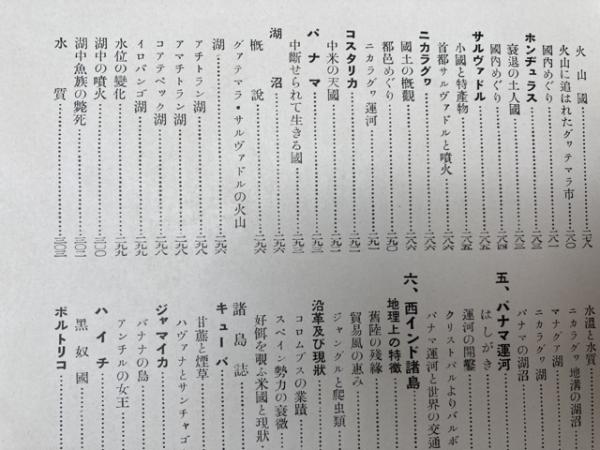 火山國……二七八
火山に追はれたグヮテマラ市……二八〇
國内めぐり……二八一
ホンデュラス……二八三
衰退の土人國……二八三
國内めぐり……二八四
サルヴァドル……二八五
小國と特産物……二八五
首都サルヴァドルと噴火……二八六
ニカラグヮ……二八八
國土の概觀……二八八
都邑めぐり……二九〇
ニカラグヮ運河……二九一
コスタリカ……二九一
中米の天國……二九一
パナマ……二九三
中斷せられて生きる國……二九三
湖沼……二九六
概說……二九六
グアテマラ・サルヴァドルの火山
湖……二九六
アチトラン湖……二九八
アマチトラン湖……二九八
コアテペック湖……二九八
イロパンゴ湖……二九九
水位の變化……二九九
湖中の噴火……三〇〇
湖中魚族の斃死……三〇二
水質……三〇三
水溫と水質
ニカラグヮ地溝の湖沼
マナグワ湖
ニカラグワ湖
パナマの湖沼
五、パナマ運河
はしがき
運河の開鑿
クリストバルよりバルボ
パナマ運河と世界の交通
六、西インド諸島
地理上の特徵
舊陸の殘緣
貿易風の惠み
ジャングルと爬虫類
沿革及び現狀
コロムブスの業蹟
スペイン勢力の衰微
好餌を覗ふ米國と現狀
諸島誌
キューバ
甘蔗と煙草
ハヴァナとサンチャゴ
ジャマイカ
バナナの島
アンチルの女王
ハイチ
黑奴國
ポルトリコ